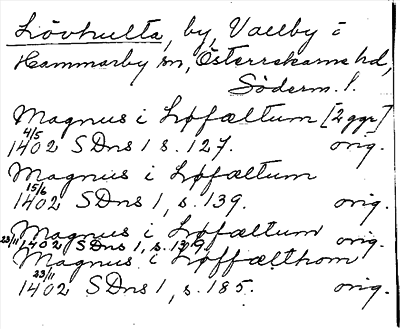 Lövhulta, by, Vallby i
Hammarby sn, Österrekarne hd,
Söderm. l.
Magnus i Løfæltum [2 ggr]
4/5
1402 SDns 1 s. 127. orig.
Magnus i Løfæltum
15/6
1402 SDns 1, s. 139. orig.
Magnus i Løfæltum
23/11 1402 SDns 1, s. 179. orig.
Magnus i Løffælthom
23/11
1402 SDns 1, s. 185. orig.